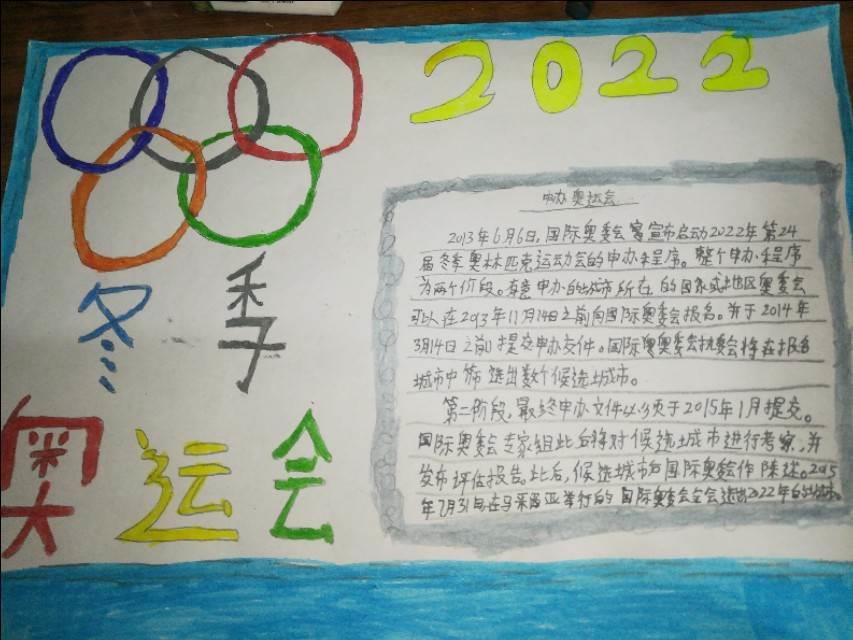 2022
冬季
奥运会
申办奥运会
2013年6月6日,国际奥委会宣布启动2022年第24
届冬季奥林匹克运动会的申办程序。整个申办程序
为两个阶段。有意申办的城市所在的国家或地区奥委会
可以在2013年11月14日之前向国际奥委会报名。并于2014年
3月14日之前提交申办文件。国际奥委会执委会将在报名
城市中筛选出数个候选城市。
第二阶段,最终申办文件必须于2015年1月提交。
国际奥委会专家组此后将对候选城市进行考察,并
发布评估报告。此后,候选城市向国际奥委作陈述。2015
年7月31日在马来西亚举行的国际奥委会全会选出2022年的